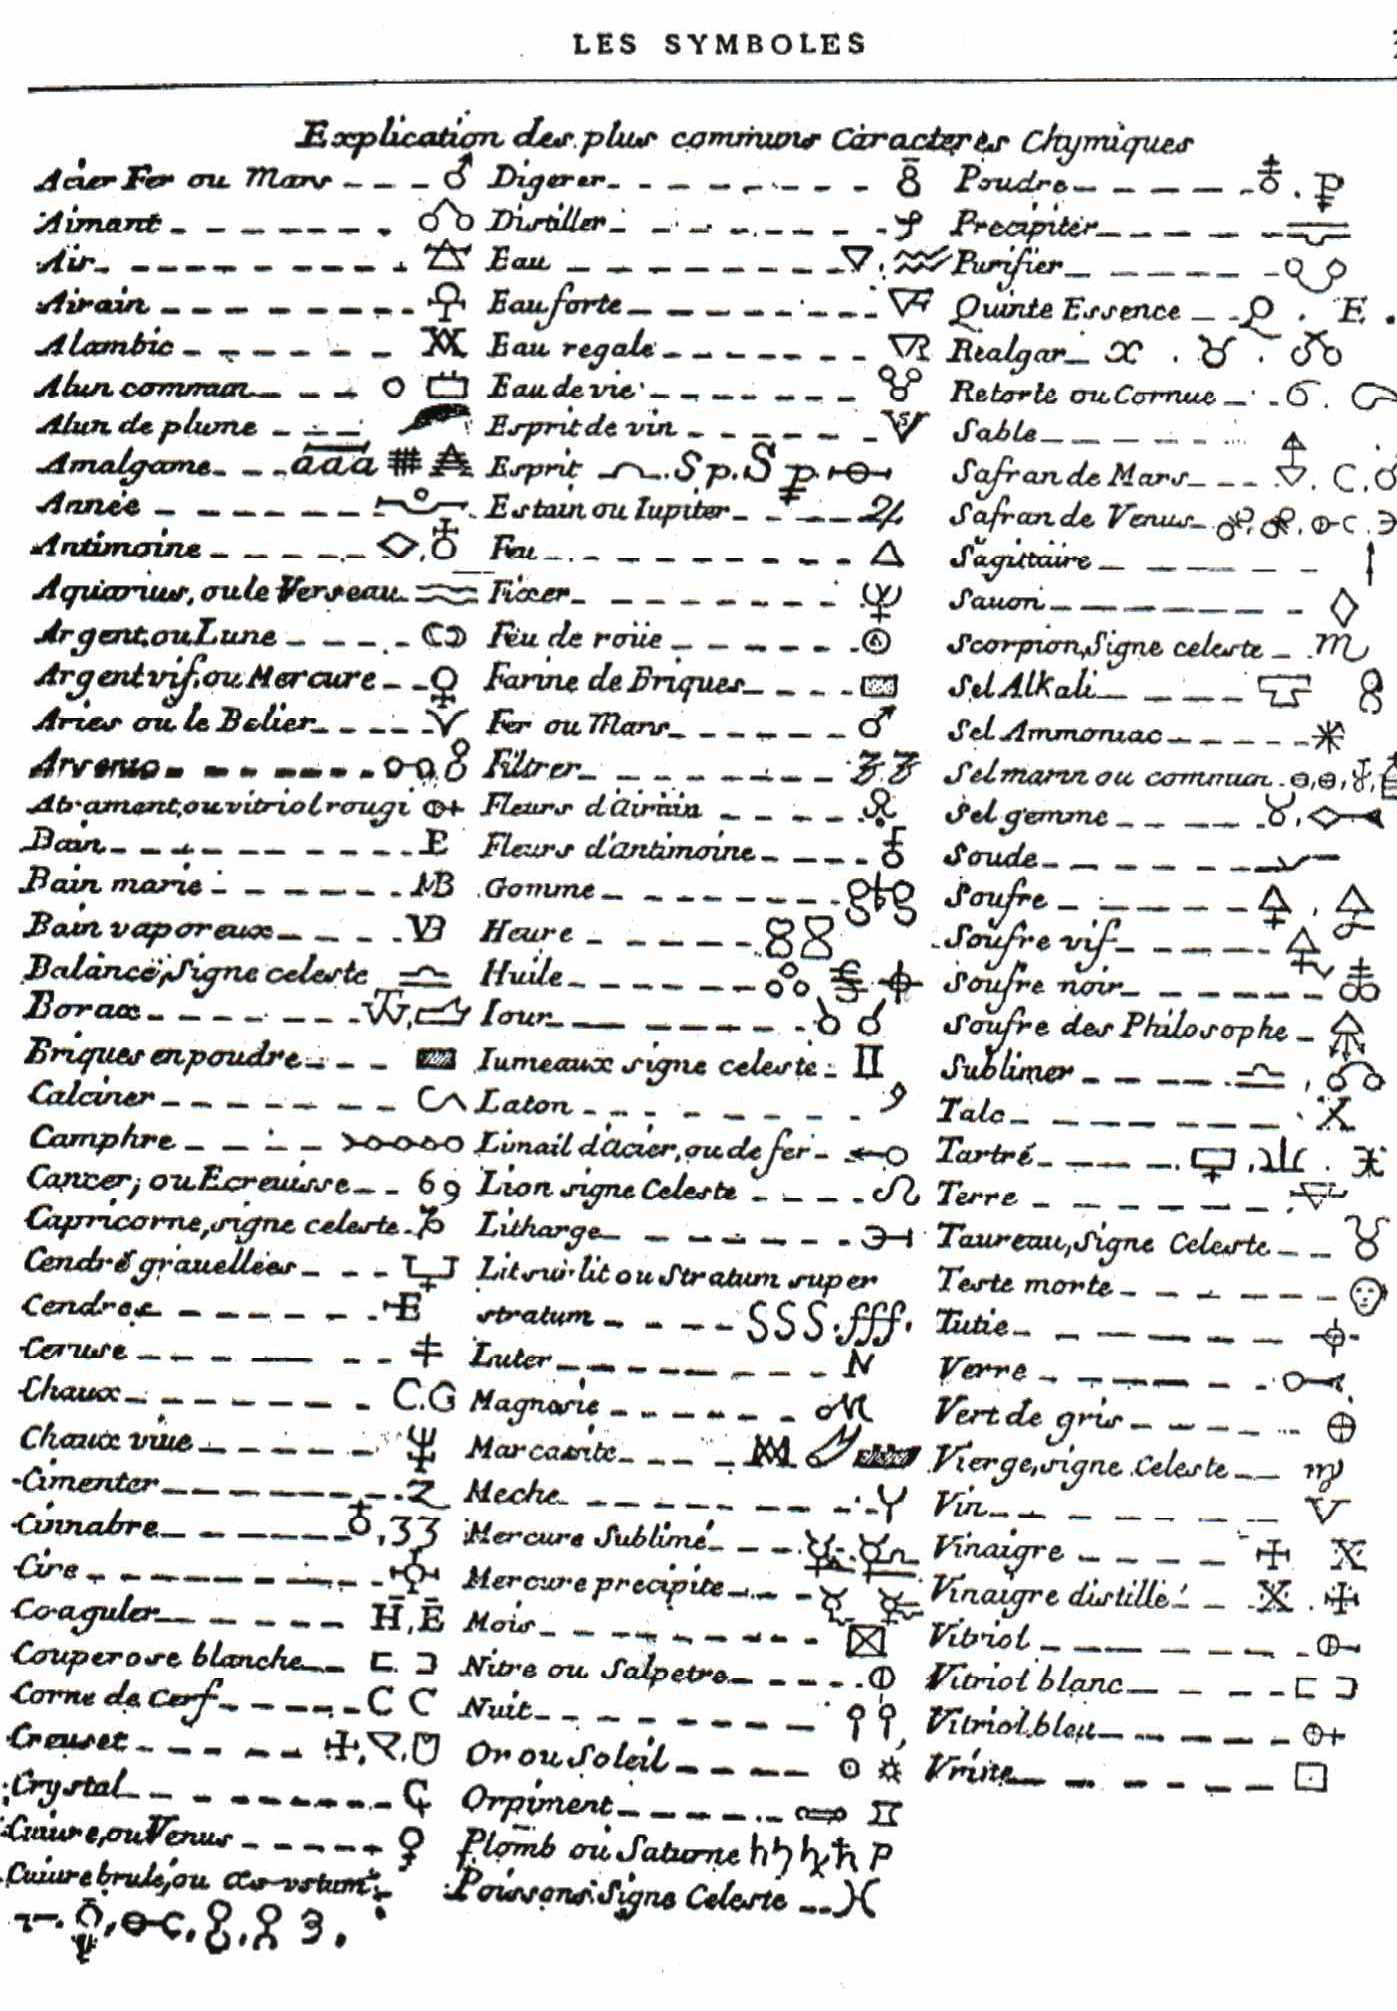 LES SYMBOLES
Explication des plus communs Caracteres Chymiques
Acier Fer ou Mars
Aimant
Air
Airain
Alambic
Alun commun
Alun de plume
Amalgame āāā
Année
Antimoine
Aquarius, ou le Verseau
Argent, ou Lune
Argent vif, ou Mercure
Aries ou le Belier
Arsenic
Atrament, ou vitriol rougi
Bain E
Bain marie MB
Bain vaporeux VB
Balance, Signe celeste
Borax
Briques en poudre
Calciner
Camphre
Cancer, ou Ecreuisse 69
Capricorne, signe celeste
Cendrés grauellées
Cendres E
Ceruse
Chaux C.G
Chaux viue
Cimenter Z
Cinnabre 33
Cire
Coaguler H, E
Couperose blanche
Corne de Cerf C C
Creuset
Crystal
Cuiure, ou Venus
Cuiure brulé, ou æs vstum
Digerer
Distiller
Eau
Eau forte
Eau regale
Eau de vie
Esprit de vin
Esprit Sp.
Estain ou Iupiter
Feu
Fixer
Feu de roüe
Farine de Briques
Fer ou Mars
Filtrer
Fleurs d'airain
Fleurs d'antimoine
Gomme
Heure
Huile
Iour
Iumeaux signe celeste
Laton
Limail d'acier, ou de fer
Lion signe Celeste
Litharge
Lit sur lit ou Stratum super
stratum SSS. fff.
Luter
Magnesie
Marcasite
Meche
Mercure Sublimé
Mercure precipite
Mois
Nitre ou Salpetre
Nuit
Or ou Soleil
Orpiment
Plomb ou Saturne P
Poissons Signe Celeste
Poudre
Precipiter
Purifier
Quinte Essence Q. E.
Realgar
Retorte ou Cornue
Sable
Safran de Mars
Safran de Venus
Sagittaire
Sauon
Scorpion, Signe celeste
Sel Alkali
Sel Ammoniac
Sel marin ou commun
Sel gemme
Soude
Soufre
Soufre vif
Soufre noir
Soufre des Philosophe
Sublimer
Talc
Tartré
Terre
Taureau, Signe Celeste
Teste morte
Tutie
Verre
Vert de gris
Vierge, signe Celeste
Vin
Vinaigre
Vinaigre distillé
Vitriol
Vitriol blanc
Vitriol bleu
Vrine